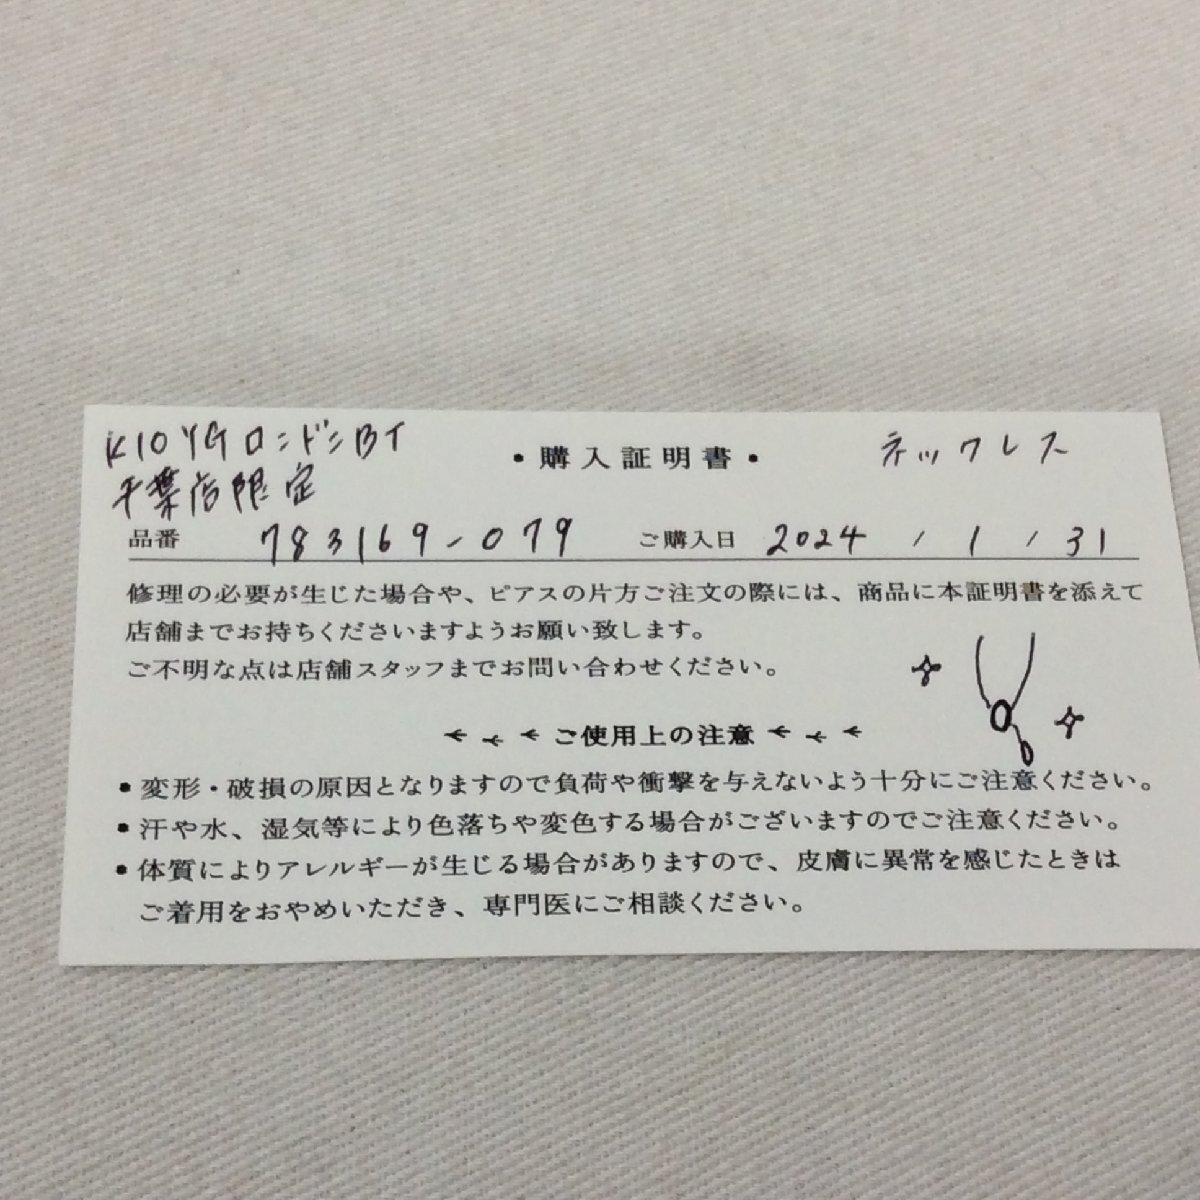 K10YGロンドンBT
千葉店限定
・購入証明書・
ネックレス
品番 783169-079 ご購入日 2024 / 1 / 31
修理の必要が生じた場合や、ピアスの片方ご注文の際には、商品に本証明書を添えて
店舗までお持ちくださいますようお願い致します。
ご不明な点は店舗スタッフまでお問い合わせください。
ご使用上の注意
・変形・破損の原因となりますので負荷や衝撃を与えないよう十分にご注意ください。
・汗や水、湿気等により色落ちや変色する場合がございますのでご注意ください。
・体質によりアレルギーが生じる場合がありますので、皮膚に異常を感じたときは
ご着用をおやめいただき、専門医にご相談ください。